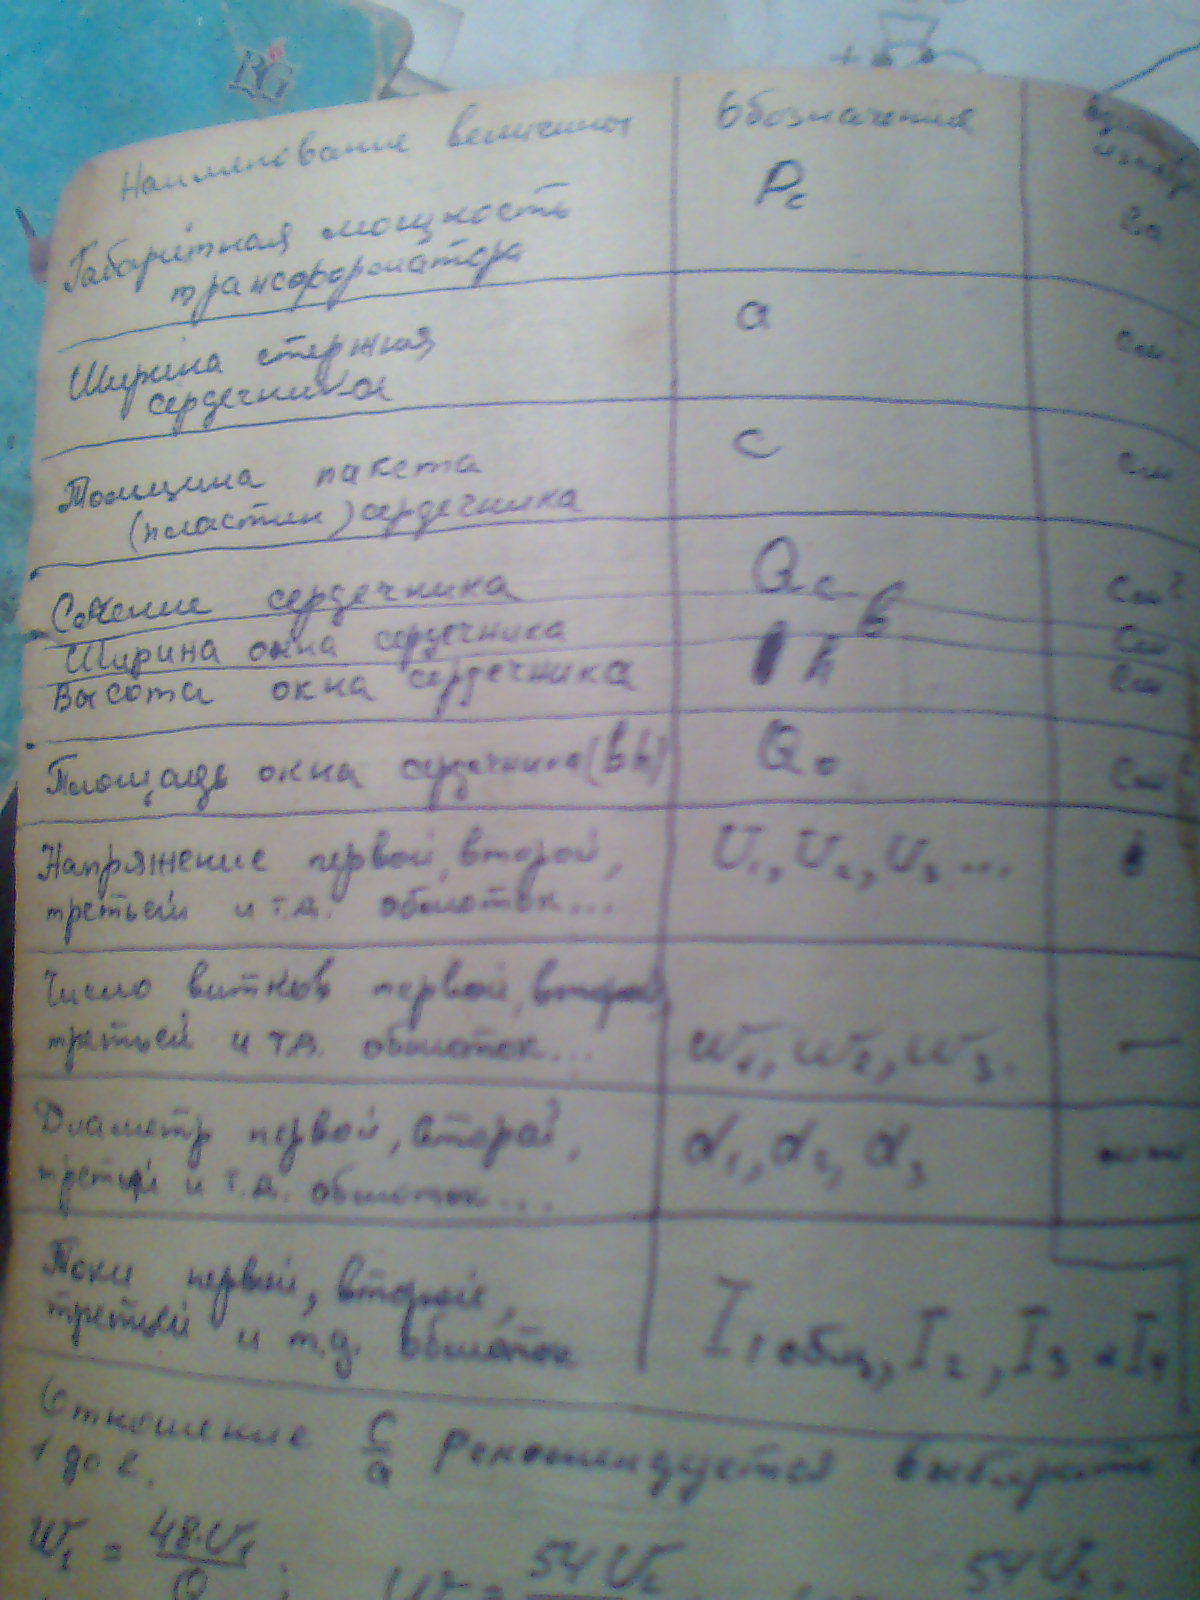 BG
+
Наименование величины Обозначения
Габаритная мощность Pc ва
трансформатора
Ширина стержня a см
сердечника
Толщина пакета c см
(пластин) сердечника
Сечение сердечника Qc см²
Ширина окна сердечника b см
Высота окна сердечника h см
Площадь окна сердечника (bh) Qo см²
Напряжение первой, второй, U1, U2, U3 ... в
третьей и т.д. обмоток...
Число витков первой, второй,
третьей и т.д. обмоток... w1, w2, w3. —
Диаметр первой, второй, d1, d2, d3 мм
третьей и т.д. обмоток...
Токи первой, второй,
третьей и т.д. обмоток I1 общ, I2, I3 и I4
Отношение c/a рекомендуется выбирать
1 до 2.
W1 = 48·U1/Q ; W = 54 U2 54 U3.